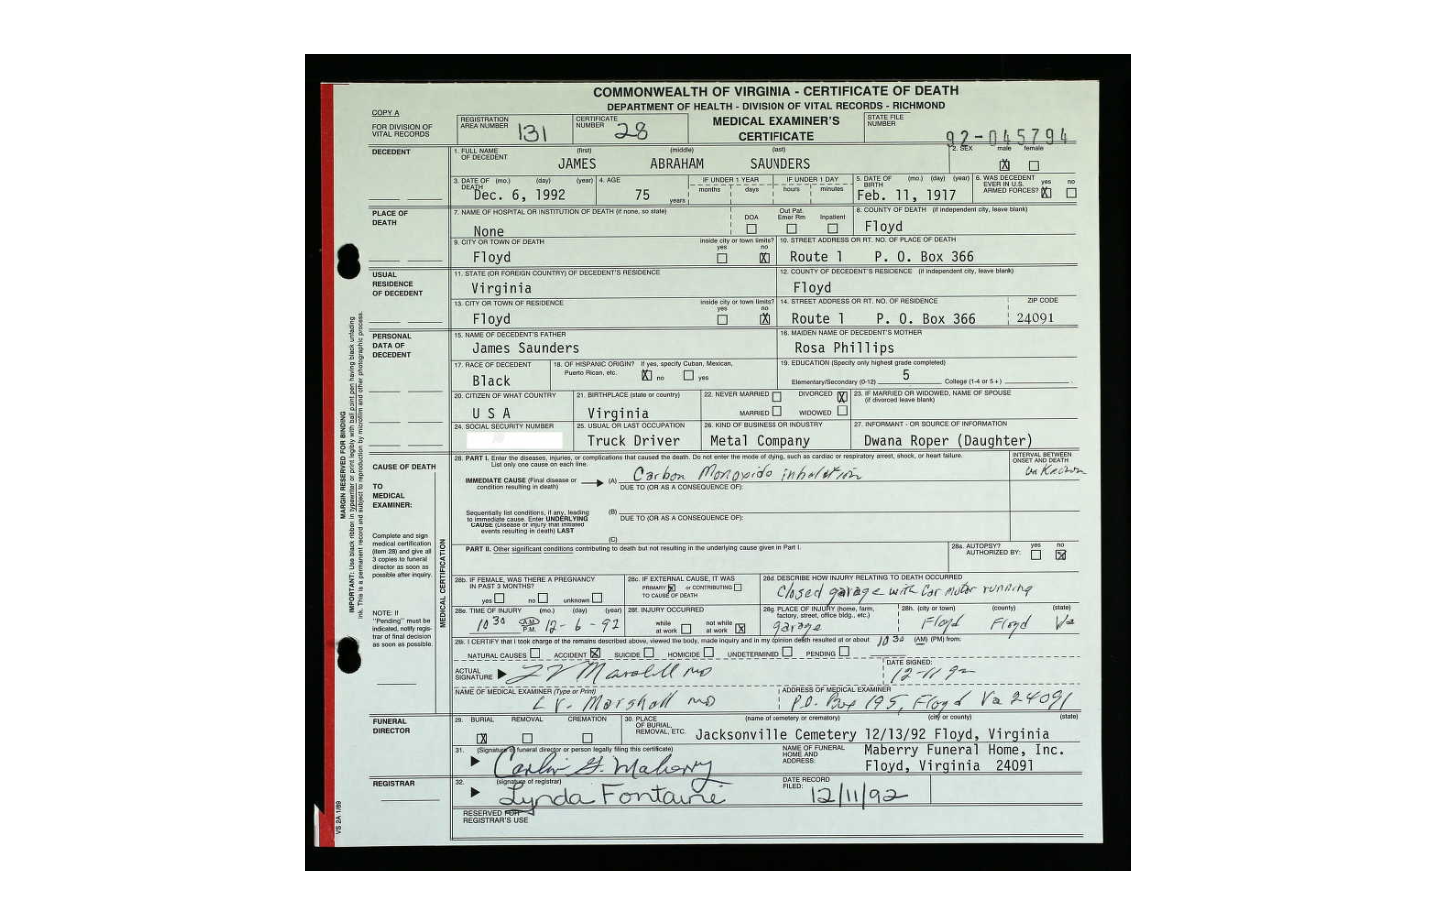 COMMONWEALTH OF VIRGINIA - CERTIFICATE OF DEATH
DEPARTMENT OF HEALTH - DIVISION OF VITAL RECORDS - RICHMOND
COPY A
FOR DIVISION OF VITAL RECORDS
REGISTRATION AREA NUMBER 131
CERTIFICATE NUMBER 28
MEDICAL EXAMINER'S CERTIFICATE
STATE FILE NUMBER 92-045794
DECEDENT
1. FULL NAME OF DECEDENT (first) (middle) (last)
JAMES ABRAHAM SAUNDERS
2. SEX male X female
3. DATE OF DEATH (mo.) (day) (year) Dec. 6, 1992
4. AGE 75 years
IF UNDER 1 YEAR months days
IF UNDER 1 DAY hours minutes
5. DATE OF BIRTH (mo.) (day) (year) Feb. 11, 1917
6. WAS DECEDENT EVER IN U.S. ARMED FORCES? yes X no
PLACE OF DEATH
7. NAME OF HOSPITAL OR INSTITUTION OF DEATH (if none, so state)
None
DOA Out Pat. Emer Rm Inpatient
8. COUNTY OF DEATH (if independent city, leave blank)
Floyd
9. CITY OR TOWN OF DEATH
Floyd
inside city or town limits? yes no X
10. STREET ADDRESS OR RT. NO. OF PLACE OF DEATH
Route 1 P. O. Box 366
USUAL RESIDENCE OF DECEDENT
11. STATE (OR FOREIGN COUNTRY) OF DECEDENT'S RESIDENCE
Virginia
12. COUNTY OF DECEDENT'S RESIDENCE (if independent city, leave blank)
Floyd
13. CITY OR TOWN OF RESIDENCE
Floyd
inside city or town limits? yes no X
14. STREET ADDRESS OR RT. NO. OF RESIDENCE
Route 1 P. O. Box 366
ZIP CODE
24091
PERSONAL DATA OF DECEDENT
15. NAME OF DECEDENT'S FATHER
James Saunders
16. MAIDEN NAME OF DECEDENT'S MOTHER
Rosa Phillips
17. RACE OF DECEDENT
Black
18. OF HISPANIC ORIGIN? If yes, specify Cuban, Mexican, Puerto Rican, etc. X no yes
19. EDUCATION (Specify only highest grade completed)
Elementary/Secondary (0-12) 5 College (1-4 or 5+)
20. CITIZEN OF WHAT COUNTRY
U S A
21. BIRTHPLACE (state or country)
Virginia
22. NEVER MARRIED DIVORCED X
MARRIED WIDOWED
23. IF MARRIED OR WIDOWED, NAME OF SPOUSE (if divorced leave blank)
24. SOCIAL SECURITY NUMBER
25. USUAL OR LAST OCCUPATION
Truck Driver
26. KIND OF BUSINESS OR INDUSTRY
Metal Company
27. INFORMANT - OR SOURCE OF INFORMATION
Dwana Roper (Daughter)
CAUSE OF DEATH
TO MEDICAL EXAMINER:
Complete and sign medical certification (item 28) and give all 3 copies to funeral director as soon as possible after inquiry.
NOTE: If "Pending" must be indicated, notify registrar of final decision as soon as possible.
MEDICAL CERTIFICATION
28. PART I. Enter the diseases, injuries, or complications that caused the death. Do not enter the mode of dying, such as cardiac or respiratory arrest, shock, or heart failure. List only one cause on each line.
INTERVAL BETWEEN ONSET AND DEATH
unknown
IMMEDIATE CAUSE (Final disease or condition resulting in death) (A) Carbon Monoxide inhalation
DUE TO (OR AS A CONSEQUENCE OF):
Sequentially list conditions, if any, leading to immediate cause. Enter UNDERLYING CAUSE (Disease or injury that initiated events resulting in death) LAST
(B)
DUE TO (OR AS A CONSEQUENCE OF):
(C)
PART II. Other significant conditions contributing to death but not resulting in the underlying cause given in Part I.
28a. AUTOPSY? AUTHORIZED BY: yes no X
28b. IF FEMALE, WAS THERE A PREGNANCY IN PAST 3 MONTHS? yes no unknown
28c. IF EXTERNAL CAUSE, IT WAS PRIMARY X or CONTRIBUTING TO CAUSE OF DEATH
28d. DESCRIBE HOW INJURY RELATING TO DEATH OCCURRED
Closed garage with Car Motor running
28e. TIME OF INJURY (mo.) (day) (year)
10 30 A.M. P.M. 12-6-92
28f. INJURY OCCURRED while at work not while at work X
28g. PLACE OF INJURY (home, farm, factory, street, office bldg., etc.)
garage
28h. (city or town) (county) (state)
Floyd Floyd Va
28i. I CERTIFY that I took charge of the remains described above, viewed the body, made inquiry and in my opinion death resulted at or about 10 30 (AM) (PM) from:
NATURAL CAUSES ACCIDENT X SUICIDE HOMICIDE UNDETERMINED PENDING
ACTUAL SIGNATURE L V Marshall MD
DATE SIGNED: 12-11-92
NAME OF MEDICAL EXAMINER (Type or Print)
L V. Marshall MD
ADDRESS OF MEDICAL EXAMINER
P.O. Box 195, Floyd Va 24091
FUNERAL DIRECTOR
29. BURIAL REMOVAL CREMATION
X
30. PLACE OF BURIAL, REMOVAL, ETC. (name of cemetery or crematory) (city or county) (state)
Jacksonville Cemetery 12/13/92 Floyd, Virginia
31. (Signature of funeral director or person legally filing this certificate)
Carlin G. Maberry
NAME OF FUNERAL HOME AND ADDRESS:
Maberry Funeral Home, Inc.
Floyd, Virginia 24091
REGISTRAR
32. (signature of registrar)
Lynda Fontaine
DATE RECORD FILED: 12/11/92
RESERVED FOR REGISTRAR'S USE
MARGIN RESERVED FOR BINDING
IMPORTANT: Use black ribbon in typewriter or print legibly with ball point pen having black unfading ink. This is a permanent record and subject to reproduction by microfilm and other photographic process.
VS 2A 1/89